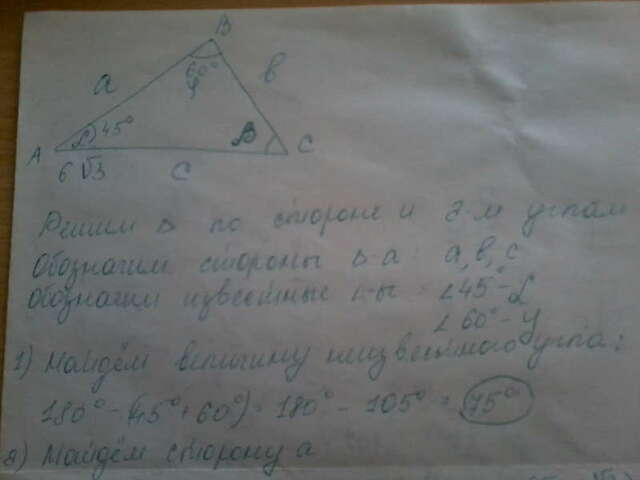 B
60°
a
в
45°
β
A
C
6√3
c
Решим Δ по стороне и 2-м углам
Обозначим стороны Δ-а: a, в, c
Обозначим известные ∠-ы = ∠45°-α
∠60°-γ
1) Найдём величину неизвестного угла:
180° - (45° + 60°) = 180° - 105° = 75°
2) Найдём сторону a